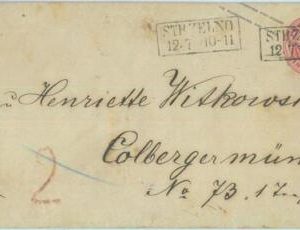 STRZELNO
12/7 10-11
STRZ
12/7
Henriette Witkows
Colbergermün
No 73. 1
2